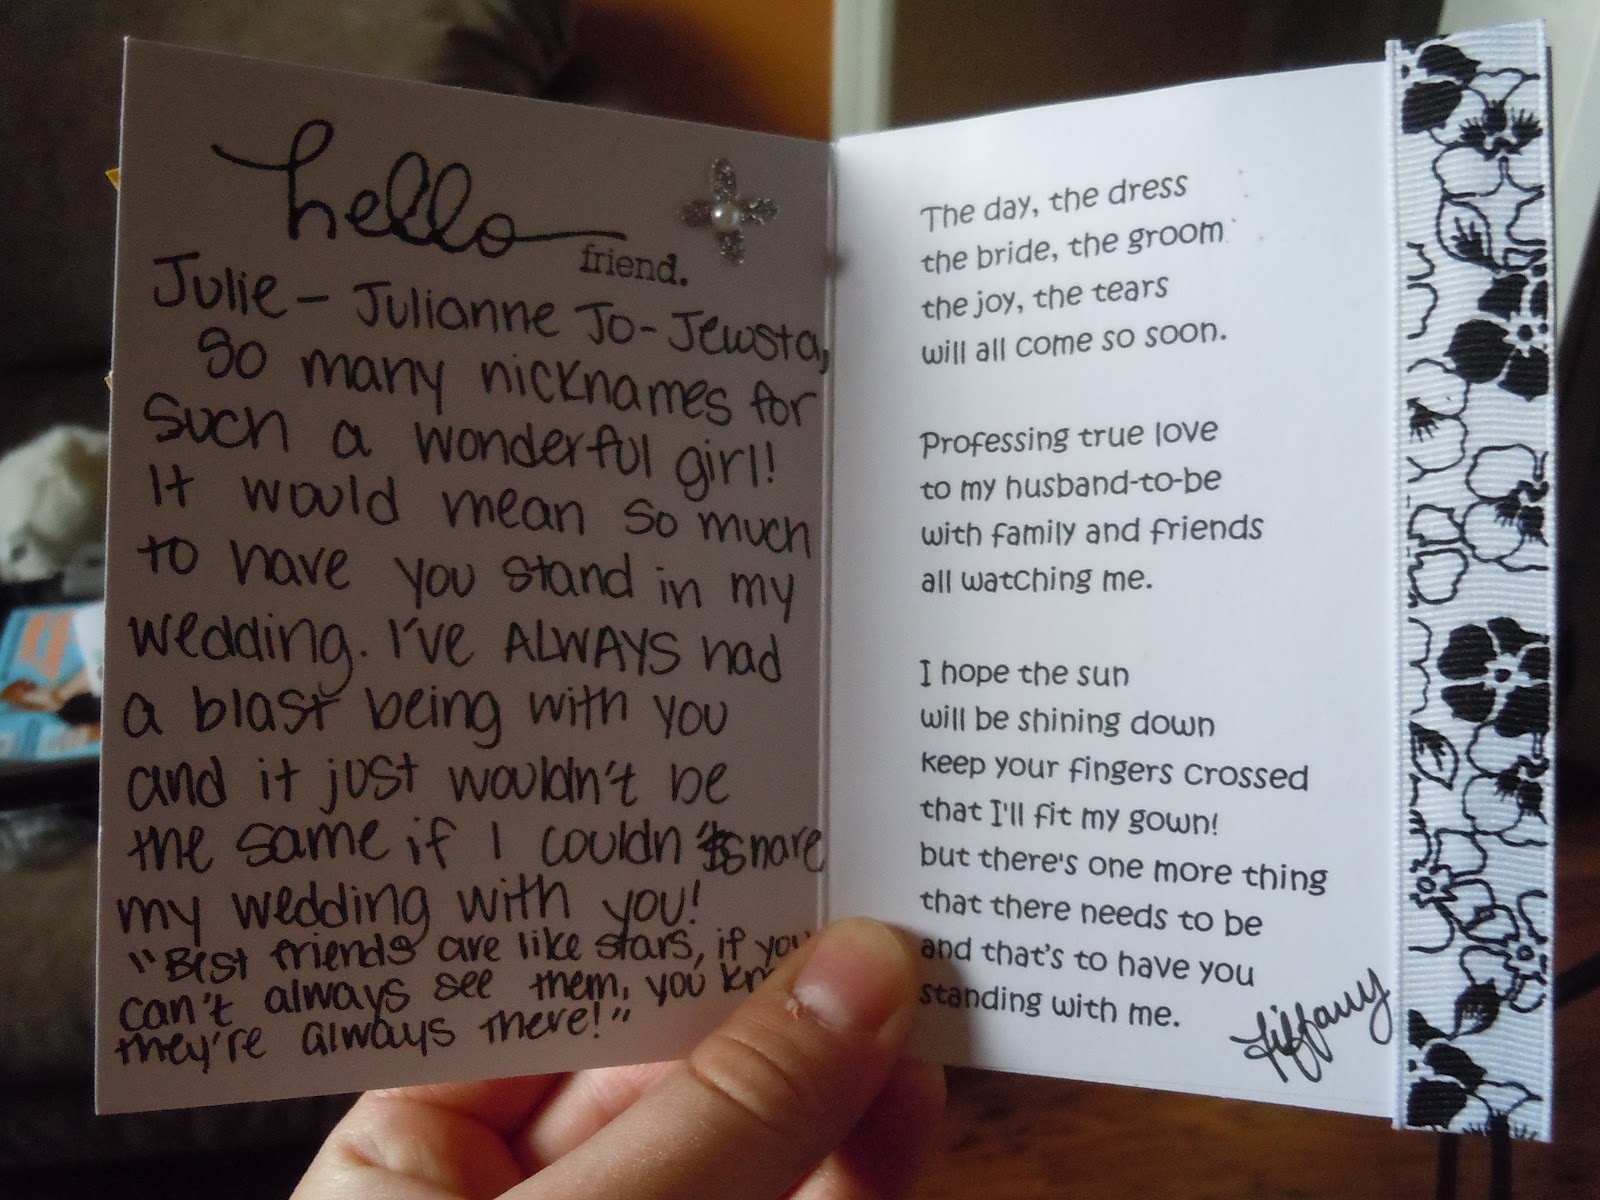 hello
friend.
Julie - Julianne Jo - Jewsta,
So many nicknames for
such a wonderful girl!
It would mean so much
to have you stand in my
wedding. I've ALWAYS had
a blast being with you
and it just wouldn't be
the same if I couldn't share
my wedding with you!
"Best friends are like stars, if you
can't always see them, you
they're always there!"
The day, the dress
the bride, the groom
the joy, the tears
will all come so soon.
Professing true love
to my husband-to-be
with family and friends
all watching me.
I hope the sun
will be shining down
keep your fingers crossed
that I'll fit my gown!
but there's one more thing
that there needs to be
and that's to have you
standing with me.
Tiffany